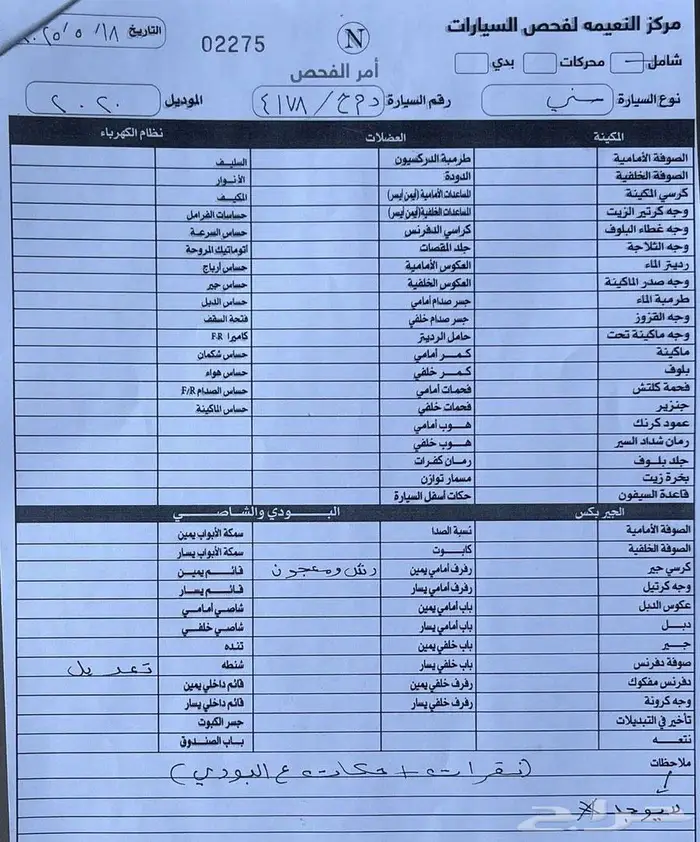 مركز النعيمه لفحص السيارات
N
02275
التاريخ ٢٠٢٥/٥/١٨
شامل محركات بدي
أمر الفحص
نوع السيارة ( سني ) رقم السيارة ( د م ح / ٤١٧٨ ) الموديل ( ٢٠٢٠ )
المكينة العضلات نظام الكهرباء
الصوفة الأمامية طرمبة الدركسيون السليف
الصوفة الخلفية الدودة الأنوار
كرسي المكينة المساعدات الأمامية (أيمن أيسر) المكيف
وجه كرتير الزيت المساعدات الخلفية (أيمن أيسر) حساسات الفرامل
وجه غطاء البلوف كراسي الدفرنس حساس السرعة
وجه الثلاجة جلد المقصات أتوماتيك المروحة
رديتر الماء العكوس الأمامية حساس أرباج
وجه صدر الماكينة العكوس الخلفية حساس جير
طرمبة الماء جسر صدام أمامي حساس الدبل
وجه القزوز جسر صدام خلفي فتحة السقف
وجه ماكينة تحت حامل الرديتر كاميرا F-R
ماكينة كمر أمامي حساس شكمان
بلوف كمر خلفي حساس هواء
فحمة كلتش فحمات أمامي حساس الصدام F/R
جنزير فحمات خلفي حساس الماكينة
عمود كرنك هوب أمامي
رمان شداد السير هوب خلفي
جلد بلوف رمان كفرات
بخرة زيت مسمار توازن
قاعدة السيفون حكات أسفل السيارة
الجيربكس البودي والشاصي
الصوفة الأمامية نسبة الصدا سمكة الأبواب يمين
الصوفة الخلفية كابوت سمكة الأبواب يسار
كرسي جير رفرف أمامي يمين رش ومعجون قائم يمين
وجه كرتيل رفرف أمامي يسار قائم يسار
عكوس الدبل باب أمامي يمين شاصي أمامي
دبل باب أمامي يسار شاصي خلفي
جير باب خلفي يمين تنده
صوفة دفرنس باب خلفي يسار شنطه تعديل
دفرنس مفكوك رفرف خلفي يمين قائم داخلي يمين
وجه كرونة رفرف خلفي يسار قائم داخلي يسار
تأخير في التبديلات جسر الكبوت
نتعه باب الصندوق
ملاحظات
(نقرات + حكات ع البودي)
لايوجد
حراج